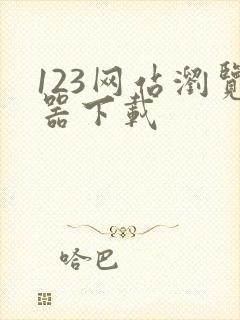 123网站瀏覽
器下載
哈巴